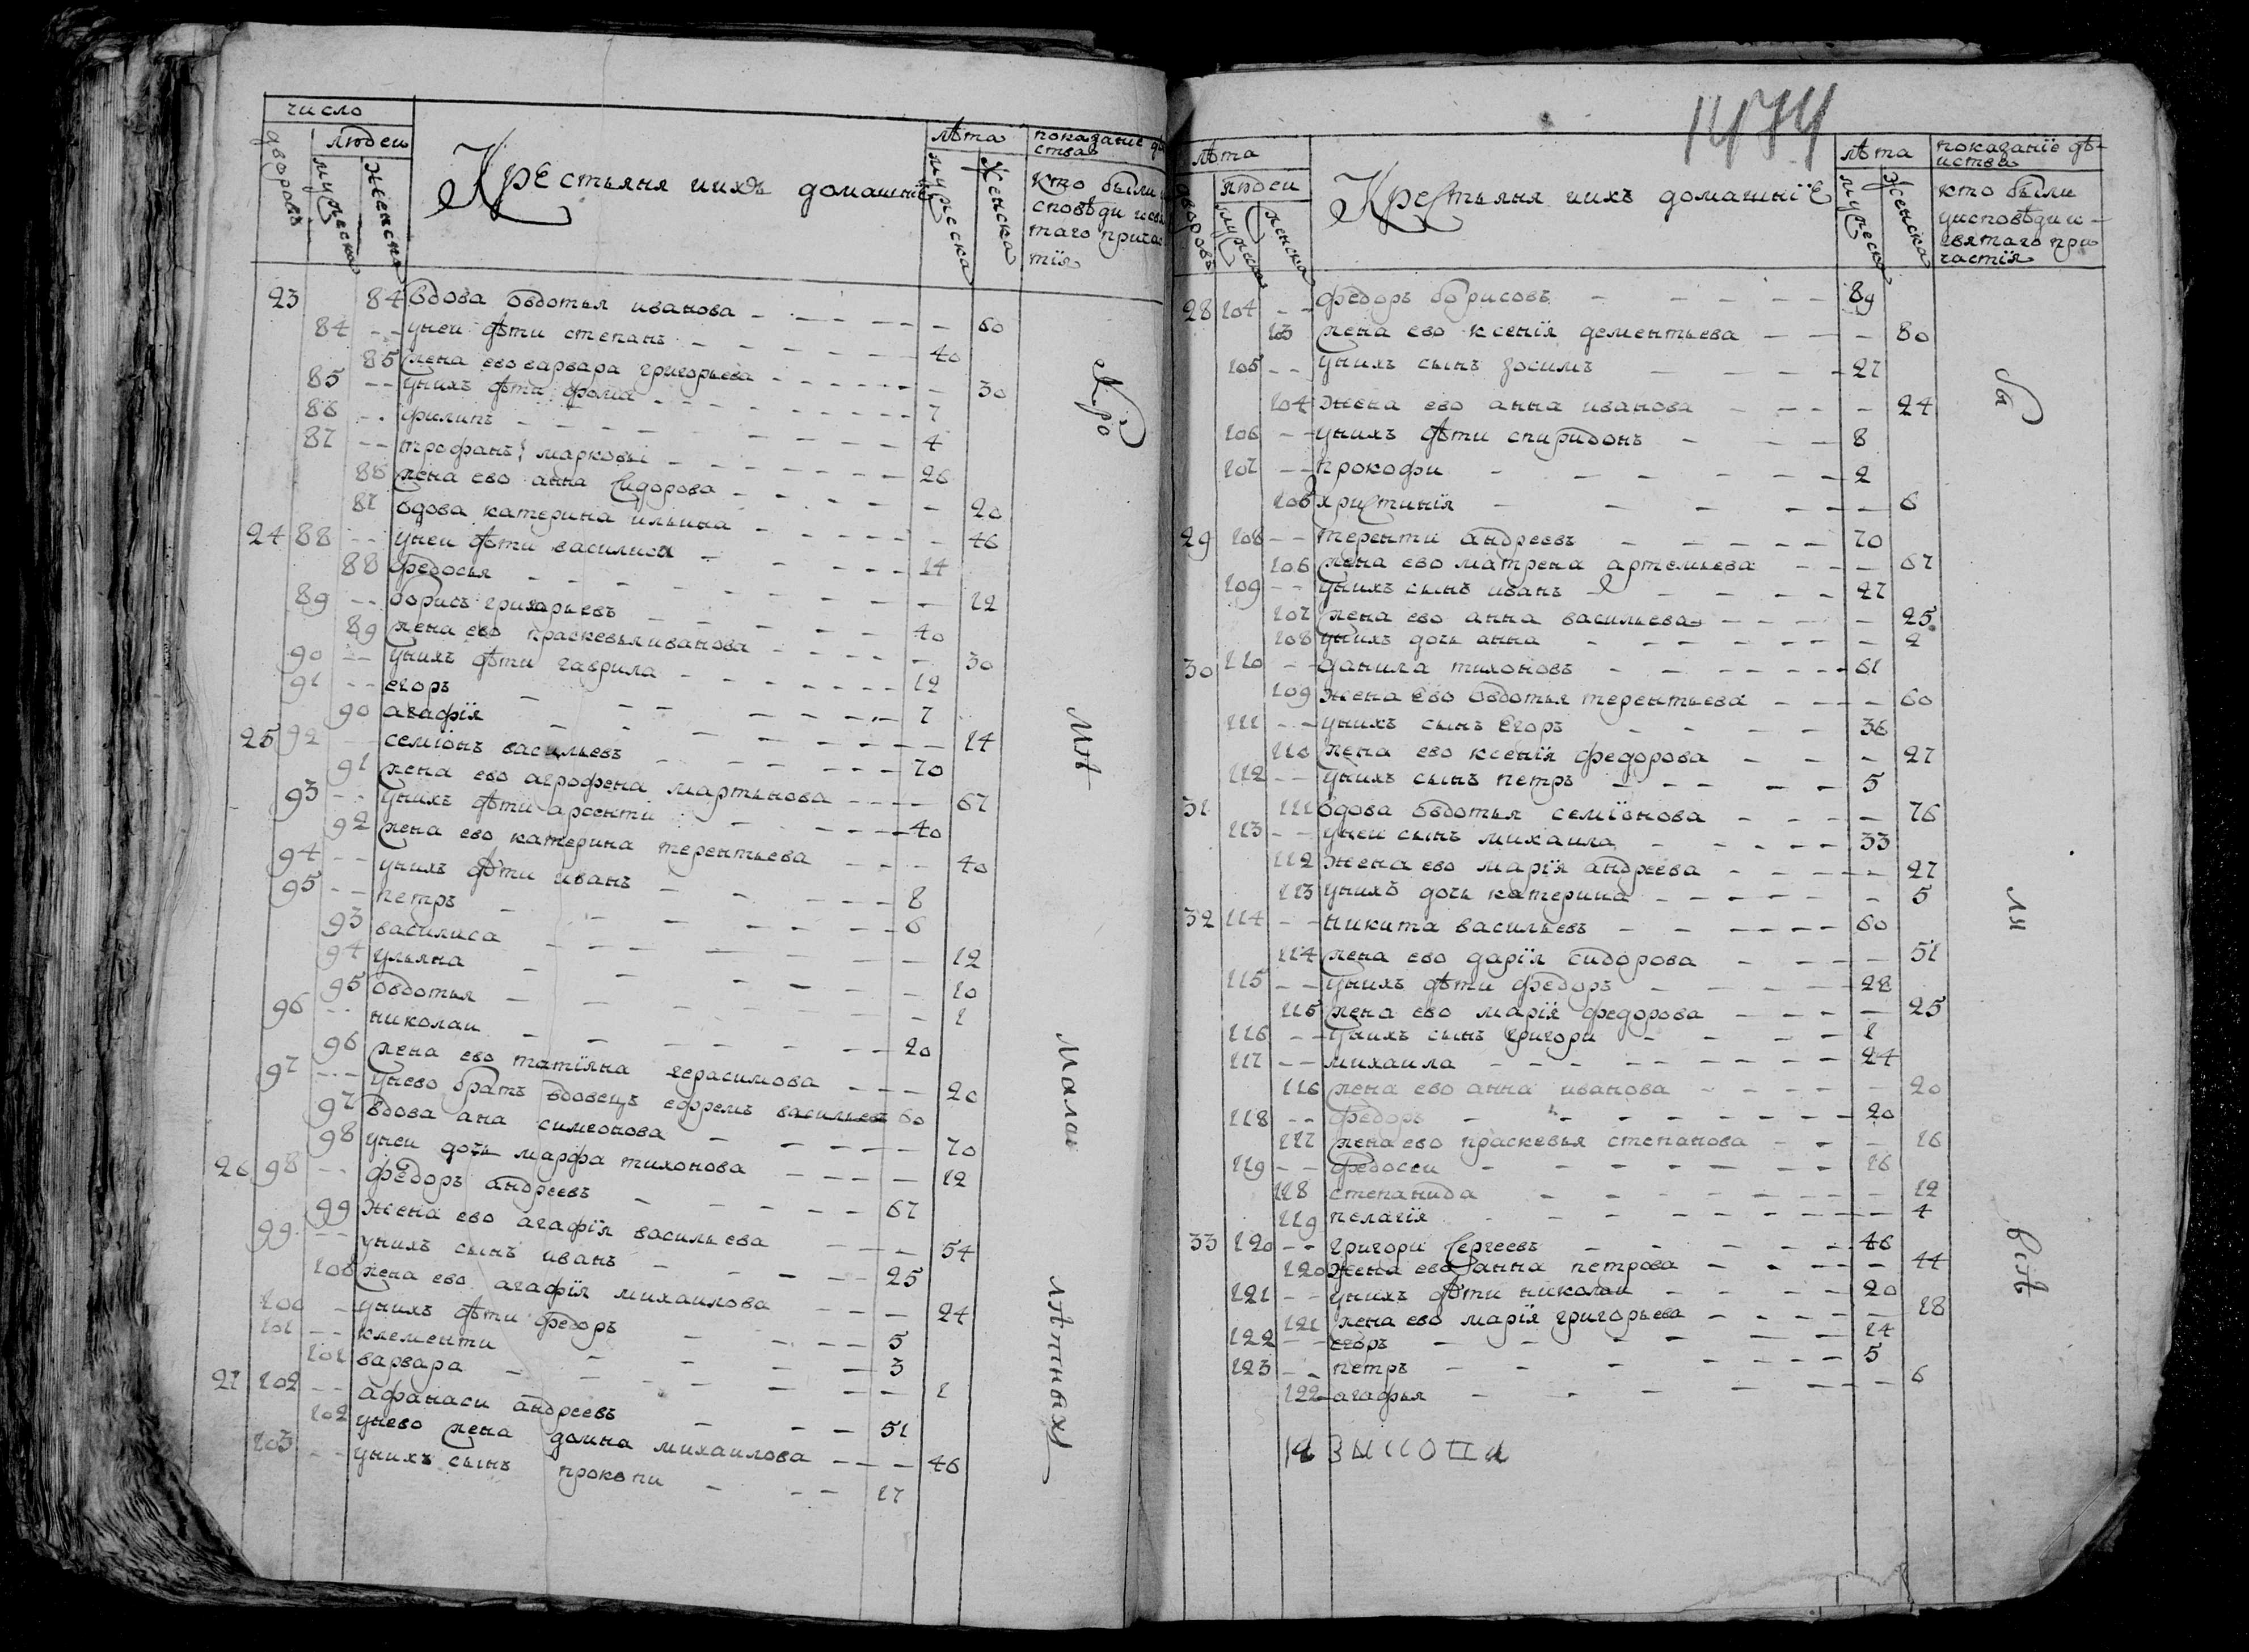 число
дворовъ
людеи
мужеска
женска
Крестьяня иихъ домашніе
лѣта
мужеска
женска
показаніе дѣ
ства
кто были
споведи исвя
таго прича
тія
23 84 вдова овдотья иванова - - - - - - 60
84 - - унеи дѣти степанъ - - - - - - 40
85 жена ево варвара григорьева - - - - - - 30
85 - - унихъ дѣти фома - - - - - - 7
86 - - филипъ - - - - - - 4
87 - - трофанъ марковы - - - - - - 26
86 жена ево анна сидорова - - - - - 20
87 вдова катерина ильина - - - - - - 46
24 88 - - унеи дѣти василиси - - - - - 14
88 федосья - - - - - - 12
89 - - борисъ григорьевъ - - - - - - 40
89 жена ево праскевья иванова - - - - - 30
90 - - унихъ дѣти гаврила - - - - - - 12
91 - - егоръ - - - - - - 7
90 агафія - - - - - - 14
25 92 - - семіонъ васильевъ - - - - - - 70
91 жена ево агрофена мартынова - - - - 67
93 - - унихъ дѣти арсенти - - - - - 40
92 жена ево катерина терентьева - - - 40
94 - - унихъ дѣти иванъ - - - - - - 8
95 - - петръ - - - - - - 6
93 василиса - - - - - - 12
94 ульяна - - - - - - 10
95 овдотья - - - - - - 1
96 - - николаи - - - - - - 20
96 жена ево татіяна герасимова - - - 20
97 - - унево братъ вдовецъ ефремъ васильевъ 60
97 вдова ана симеонова - - - - - 70
98 унеи дочь марфа тихонова - - - - 12
26 98 - - федоръ андреевъ - - - - - 67
99 жена ево агафія васильева - - - 54
99 - - унихъ сынъ иванъ - - - - - 25
100 жена ево агафія михаилова - - - - 24
100 - унихъ дѣти федоръ - - - - - 5
101 - - клементи - - - - - 3
101 варвара - - - - - - 1
27 102 - - афанаси андреевъ - - - 51
102 унево жена домна михаилова - - - - 46
103 - - унихъ сынъ прокопи - - - 17
Кро
мѣ
малы
лѣтныхъ
1474
лѣта
дворовъ
людеи
мужска
женска
Крестьяня иихъ домашніе
лѣта
мужеска
женска
показаніе дѣ-
иства
кто были
уисповѣди и -
святаго при
частія
28 104 - - федоръ борисовъ - - - - - - 89
103 жена ево ксенія дементьева - - - 80
105 - - унихъ сынъ зосимъ - - - - 27
104 жена ево анна иванова - - - - 24
106 - - унихъ дѣти спиридонъ - - - 8
107 - - прокофи - - - - - - 2
105 христинія - - - - - - 6
29 108 - - теренти андреевъ - - - - - 70
106 жена ево матрена артемьева - - - 67
109 - - унихъ сынъ иванъ - - - - - 27
107 жена ево анна васильева - - - - - 25
108 унихъ дочь анна - - - - - - 2
30 110 - - данила тихоновъ - - - - - - 61
109 жена ево овдотья терентьева - - - - 60
111 - - унихъ сынъ егоръ - - - - 36
110 жена ево ксенія федорова - - - 27
112 - - унихъ сынъ петръ - - - - - 5
31 111 вдова овдотья семіонова - - - - - 76
113 - - унеи сынъ михаила - - - - - 33
112 жена ево марія андреева - - - - - 27
113 унихъ дочь катерина - - - - - - 5
32 114 - - никита васильевъ - - - - - - 60
114 жена ево дарія сидорова - - - - - 51
115 - - унихъ дѣти федоръ - - - - - 28
115 жена ево марія федорова - - - - - 25
116 - - унихъ сынъ григори - - - - - 1
117 - - михаила - - - - - - - 24
116 жена ево анна иванова - - - - - 20
118 - - федоръ - - - - - - - 20
117 жена ево праскевья степанова - - - 16
119 - - федосеи - - - - - - - 16
118 степанида - - - - - - - 12
119 пелагія - - - - - - - 4
33 120 - - григори сергеевъ - - - - - - 46
120 жена ево анна петрова - - - - - 44
121 - - унихъ дѣти николаи - - - - 20
121 жена ево марія григорьева - - - - - 18
122 - - егоръ - - - - - - 14
123 - - петръ - - - - - - 5
122 агафья - - - - - - 6
бы
ли
всѣ